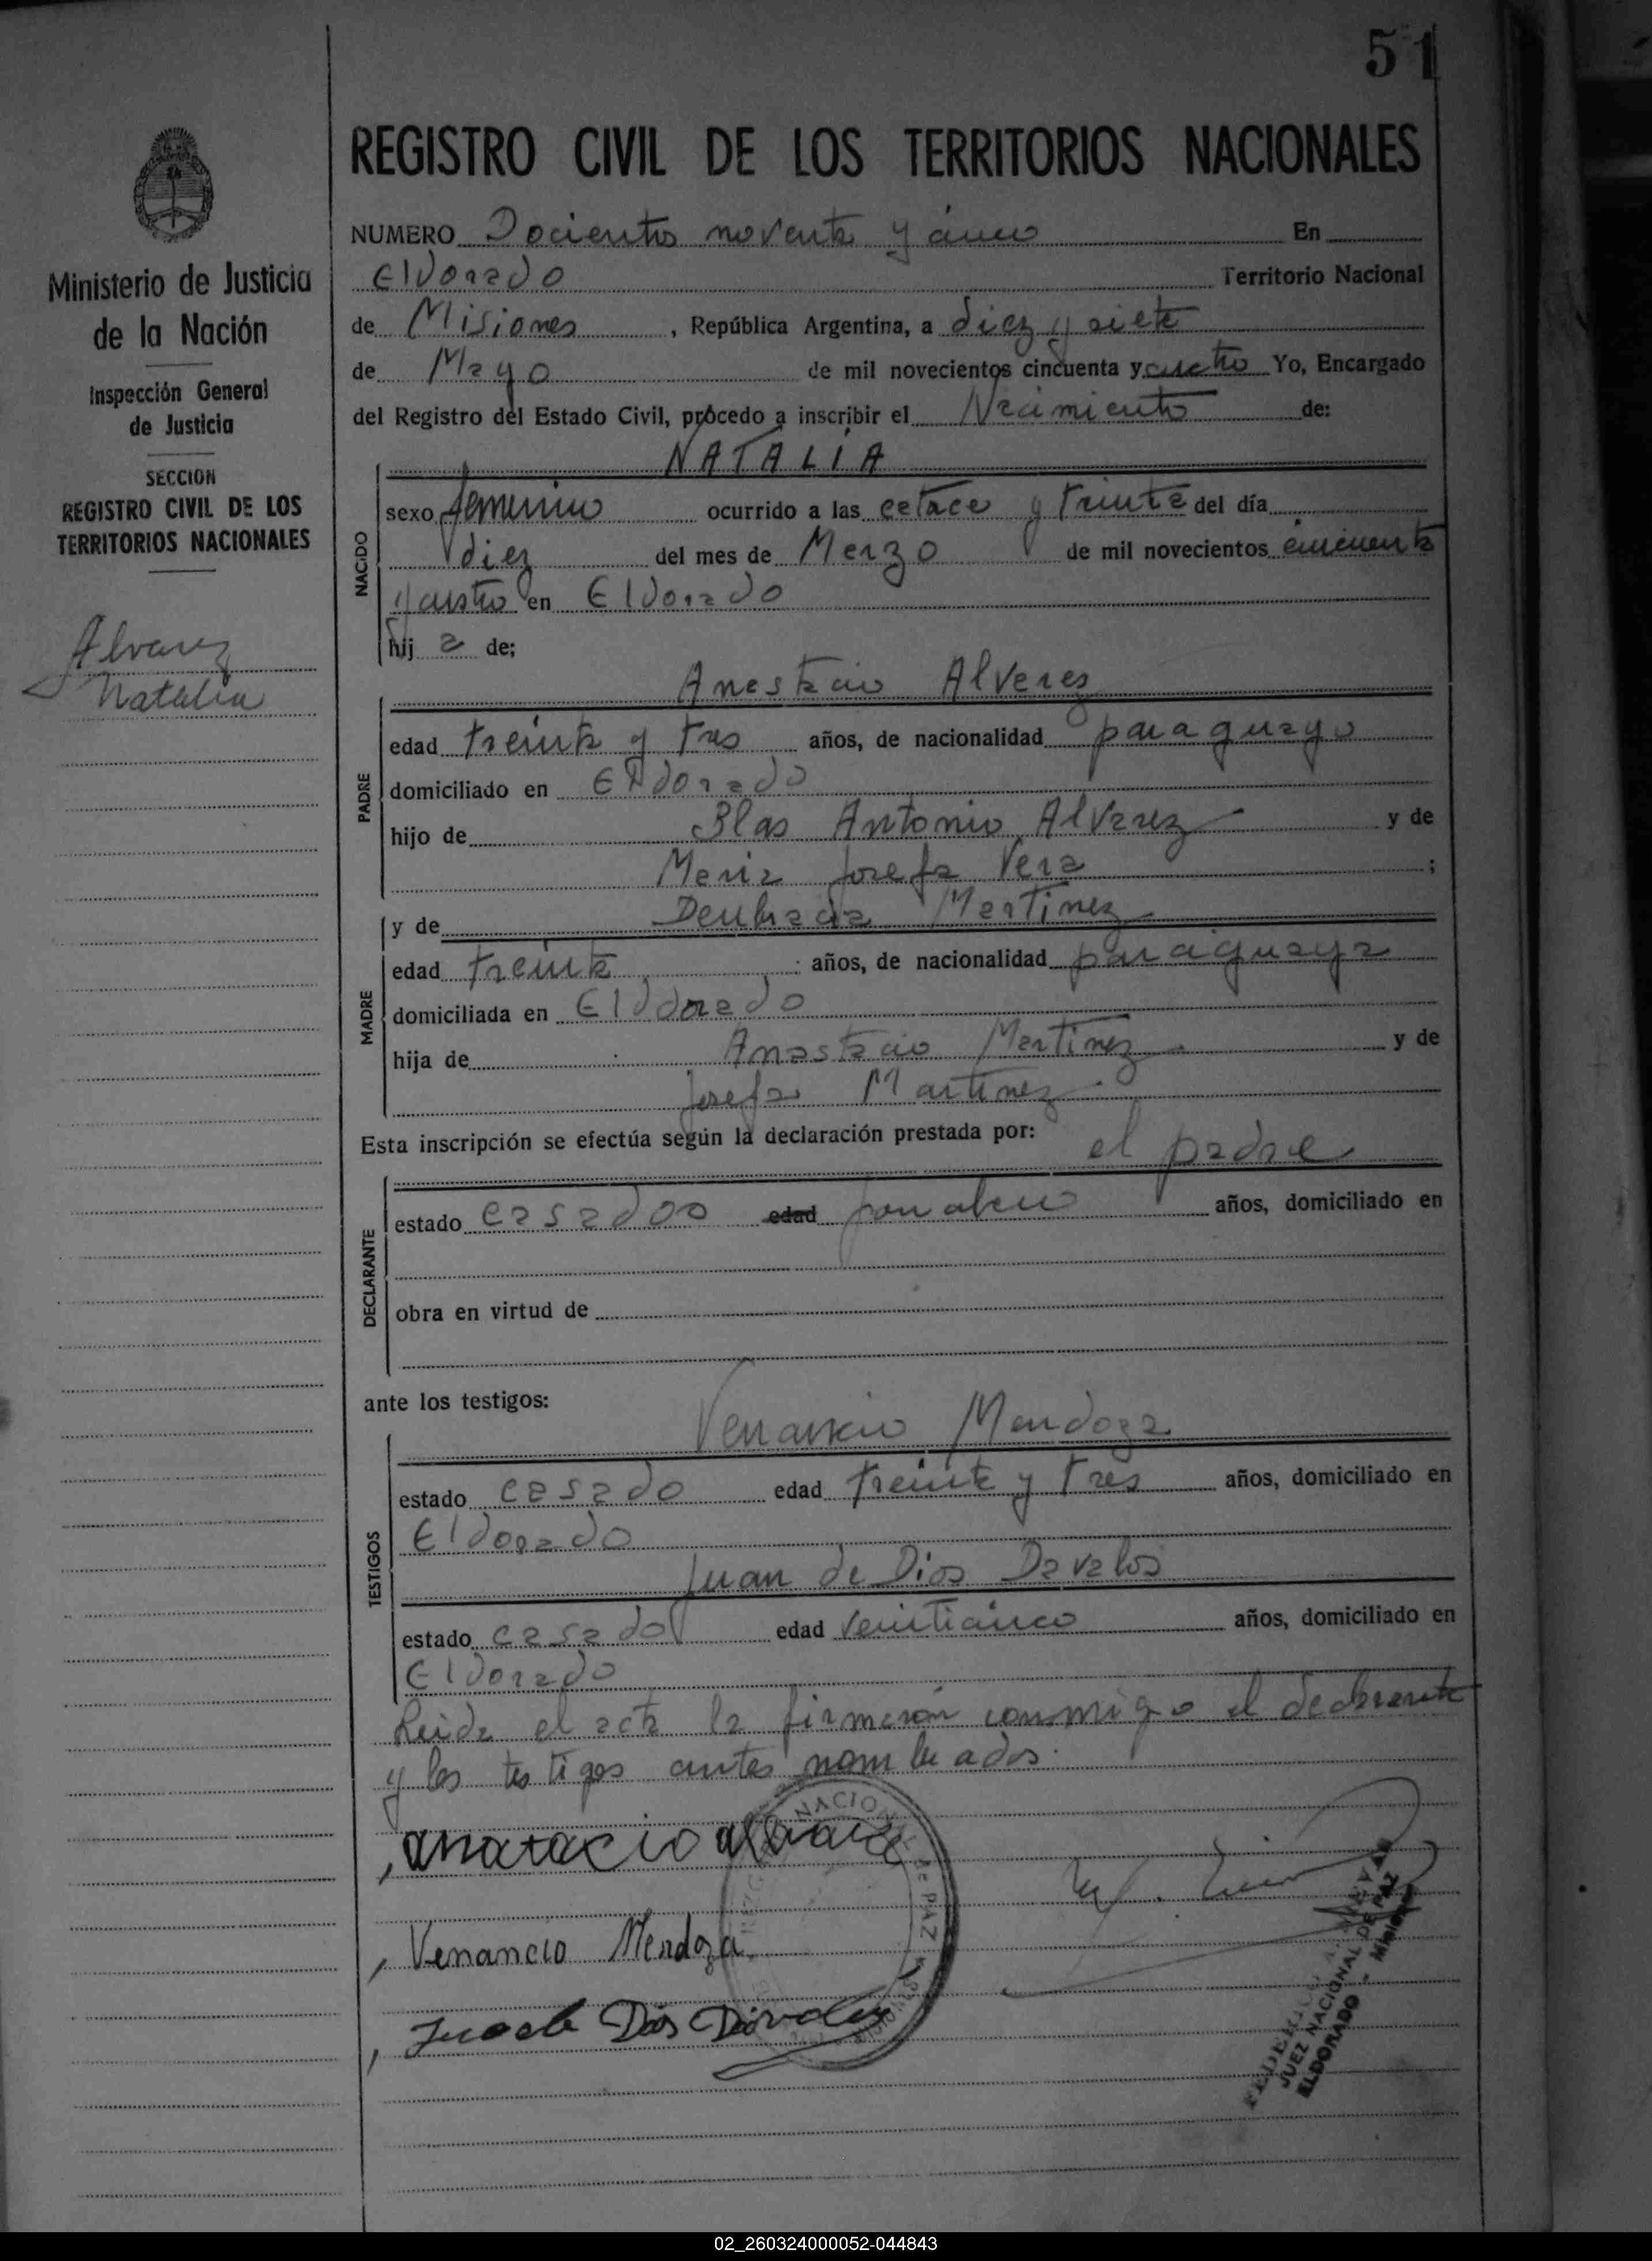 51
REGISTRO CIVIL DE LOS TERRITORIOS NACIONALES
Ministerio de Justicia
de la Nación
Inspección General
de Justicia
SECCION
REGISTRO CIVIL DE LOS
TERRITORIOS NACIONALES
Alvarez
Natalia
NUMERO Docientos noventa y cinco En
Eldorado Territorio Nacional
de Misiones, República Argentina, a diez y siete
de Mayo de mil novecientos cincuenta y cuatro Yo, Encargado
del Registro del Estado Civil, procedo a inscribir el Nacimiento de:
NATALIA
NACIDO
sexo femenino ocurrido a las catace y treinta del día
diez del mes de Marzo de mil novecientos cincuenta
y cuatro en Eldorado
hija de;
Anastacio Alvarez
PADRE
edad treinta y tres años, de nacionalidad paraguayo
domiciliado en Eldorado
hijo de Blas Antonio Alvarez y de
Maria Josefa Vera ;
y de Martinez
MADRE
edad treinta años, de nacionalidad paraguaya
domiciliada en Eldorado
hija de Anastacio Martinez y de
Josefa Martinez
Esta inscripción se efectúa según la declaración prestada por:
el padre
DECLARANTE
estado casado edad años, domiciliado en
obra en virtud de
ante los testigos:
Venancio Mendoza
TESTIGOS
estado casado edad treinta y tres años, domiciliado en
Eldorado
Juan de Dios Davalos
estado casado edad veinticinco años, domiciliado en
Eldorado
Leida el acta la firmaron conmigo el declarante
y los testigos antes nombrados.
anatacio
Venancio Mendoza
Dios Davalos
NACION
DE PAZ
JUEZ NACIONAL DE PAZ
ELDORADO - Misiones
02_260324000052-044843